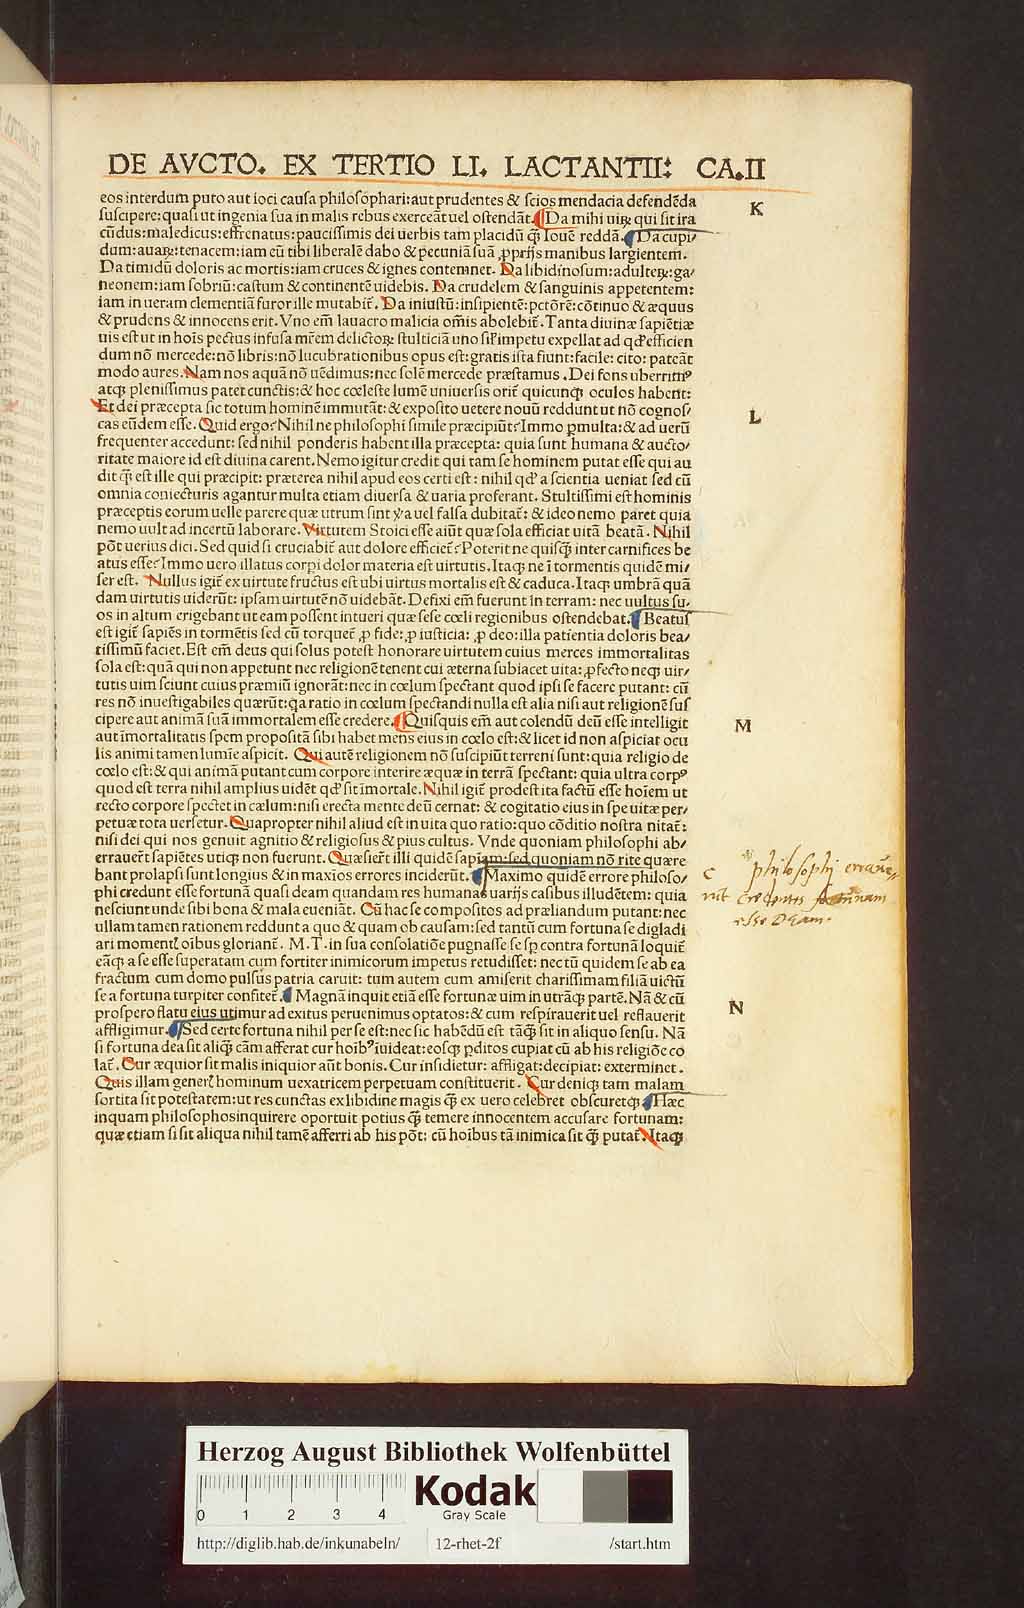 DE AVCTO. EX TERTIO LI. LACTANTII: CA.II
eos interdum puto aut ioci causa philosophari: aut prudentes & scios mendacia defendēda
suscipere: quasi ut ingenia sua in malis rebus exerceāt uel ostendāt. Da mihi uiꝝ qui sit ira
K
cūdus: maledicus: effrenatus: paucissimis dei uerbis tam placidū ꝙ̃ Iouē reddā. Da cupi/
dum: auaꝝ: tenacem: iam eū tibi liberalē dabo & pecuniā suā ꝓprijs manibus largientem.
Da timidū doloris ac mortis: iam cruces & ignes contemnet. Da libidinosum: adulteꝝ: ga/
neonem: iam sobriū: castum & continentē uidebis. Da crudelem & sanguinis appetentem:
iam in ueram clementiā furor ille mutabit̃. Da iniustū: insipientē: pctōrē: cōtinuo & æquus
& prudens & innocens erit. Vno em̄ lauacro malicia om̄is abolebit̃. Tanta diuinæ sapiētiæ
uis est ut in hoīs pectus infusa mr̄em delictoꝝ stulticiā uno sil' impetu expellat ad qd' efficien
dum nō mercede: nō libris: nō lucubrationibus opus est: gratis ista fiunt: facile: cito: pateāt
modo aures. Nam nos aquā nō uēdimus: nec solē mercede præstamus. Dei fons uberrimꝰ
atqꝫ plenissimus patet cunctis: & hoc cœleste lumē uniuersis orit̃ quicunqꝫ oculos habent:
Et dei præcepta sic totum hominē immutāt: & exposito uetere nouū reddunt ut nō cognos/
L
cas eūdem esse. Quid ergo? Nihil ne philosophi simile præcipiūt? Immo ꝑmulta: & ad uerū
frequenter accedunt: sed nihil ponderis habent illa præcepta: quia sunt humana & aucto/
ritate maiore id est diuina carent. Nemo igitur credit qui tam se hominem putat esse qui au
dit ꝙ̃ est ille qui præcipit: præterea nihil apud eos certi est: nihil qd' a scientia ueniat sed cū
omnia coniecturis agantur multa etiam diuersa & uaria proferant. Stultissimi est hominis
præceptis eorum uelle parere quæ utrum sint ỹa uel falsa dubitat̃: & ideo nemo paret quia
nemo uult ad incertū laborare. Virtutem Stoici esse aiūt quæ sola efficiat uitā beatā. Nihil
pōt uerius dici. Sed quid si cruciabit̃ aut dolore efficiet̃? Poterit ne quisꝙ̃ inter carnifices be
atus esse? Immo uero illatus corpi dolor materia est uirtutis. Itaqꝫ ne ī tormentis quidē mi/
ser est. Nullus igit̃ ex uirtute fructus est ubi uirtus mortalis est & caduca. Itaqꝫ umbrā quā
dam uirtutis uiderūt: ipsam uirtutē nō uidebāt. Defixi em̄ fuerunt in terram: nec uultus su/
os in altum erigebant ut eam possent intueri quæ sese cœli regionibus ostendebat. Beatus
est igit̃ sapiēs in tormētis sed cū torquet̃ ꝓ fide: ꝓ iusticia: ꝓ deo: illa patientia doloris bea/
tissimū faciet. Est em̄ deus qui solus potest honorare uirtutem cuius merces immortalitas
sola est: quā qui non appetunt nec religionē tenent cui æterna subiacet uita: ꝓfecto neqꝫ uir/
tutis uim sciunt cuius præmiū ignorāt: nec in cœlum spectant quod ipsi se facere putant: cū
res nō inuestigabiles quærūt: qa ratio in cœlum spectandi nulla est alia nisi aut religionē sus
cipere aut animā suā immortalem esse credere. Quisquis em̄ aut colendū deū esse intelligit
M
aut īmortalitatis spem propositā sibi habet mens eius in cœlo est: & licet id non aspiciat ocu
lis animi tamen lumīe aspicit. Qui autē religionem nō suscipiūt terreni sunt: quia religio de
cœlo est: & qui animā putant cum corpore interire æquæ in terrā spectant: quia ultra corpꝰ
quod est terra nihil amplius uidēt qd' sit īmortale. Nihil igit̃ prodest ita factū esse hoīem ut
recto corpore spectet in cælum: nisi erecta mente deū cernat: & cogitatio eius in spe uitæ per/
petuæ tota uersetur. Quapropter nihil aliud est in uita quo ratio: quo cōditio nostra nitat̃:
nisi dei qui nos genuit agnitio & religiosus & pius cultus. Vnde quoniam philosophi ab/
errauer̄t sapiētes utiqꝫ non fuerunt. Quæsier̄t illi quidē sapiam: sed quoniam nō rite quære
bant prolapsi sunt longius & in maxīos errores inciderūt. Maximo quidē errore philoso/
phi credunt esse fortunā quasi deam quandam res humanas uarijs casibus illudētem: quia
philosophi erraue,,
runt credentes fortunam
esse Deam.
nesciunt unde sibi bona & mala eueniāt. Cū hac se compositos ad præliandum putant: nec
ullam tamen rationem reddunt a quo & quam ob causam: sed tantū cum fortuna se digladi
ari momentꝭ oībus gloriant̃. M.T. in sua consolatiōe pugnasse se sꝑ contra fortunā loquit̃
eāqꝫ a se esse superatam cum fortiter inimicorum impetus retudisset: nec tū quidem se ab ea
fractum cum domo pulsus patria caruit: tum autem cum amiserit charissimam filiā uictū
se a fortuna turpiter confitet̃. Magnā inquit etiā esse fortunæ uim in utrāqꝫ partē. Nā & cū
prospero flatu eius utimur ad exitus peruenimus optatos: & cum respirauerit uel reflauerit
N
affligimur. Sed certe fortuna nihil per se est: nec sic habēdū est tāꝙ̃ sit in aliquo sensu. Nā
si fortuna dea sit aliqꝫ cām afferat cur hoībꝰ īuideat: eosqꝫ ꝑditos cupiat cū ab his religiōe co
lat̃. Cur æquior sit malis iniquior aūt bonis. Cur insidietur: affligat: decipiat: exterminet.
Quis illam generꝭ hominum uexatricem perpetuam constituerit. Cur deniqꝫ tam malam
sortita sit potestatem: ut res cunctas ex libidine magis ꝙ̃ ex uero celebret obscuretqꝫ. Hæc
inquam philosophos inquirere oportuit potius ꝙ̃ temere innocentem accusare fortunam:
quæ etiam si sit aliqua nihil tamē afferri ab his pōt: cū hoībus tā inimica sit ꝙ̃ putat̃. Itaqꝫ
Herzog August Bibliothek Wolfenbüttel
0 1 2 3 4
Kodak
Gray Scale
http://diglib.hab.de/inkunabeln/ 12-rhet-2f /start.htm